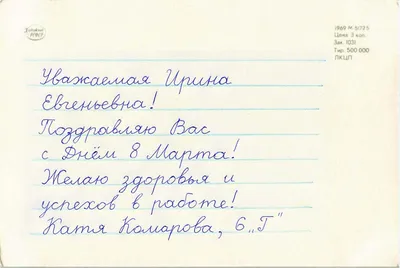 1989 РК 5/73 5
Цена 3 коп.
Зак. 1031
Тир. 500 000
ЛКЦП
Уважаемая Ирина
Евгеньевна!
Поздравляю Вас
с Днём 8 Марта!
Желаю здоровья и
успехов в работе!
Катя Комарова, 6 „Г"